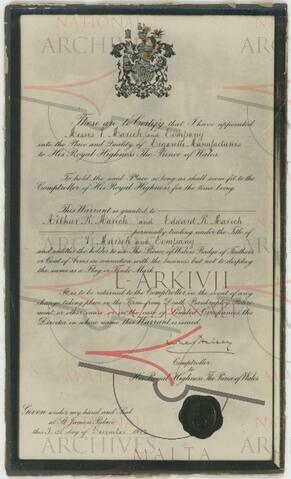 NATIONAL
ARCHIVES
These are to Certify that I have appointed
Messrs V. Marich and Company
into the Place and Quality of Cigarette Manufacturers
to His Royal Highness The Prince of Wales
To hold the said Place so long as shall seem fit to the
Comptroller of His Royal Highness for the time being.
This Warrant is granted to
Arthur R. Marich and Edward R. Marich
personally trading under the Title of
V. Marich and Company
and entitles the holder to use The Prince of Wales's Badge of Feathers
or Coat of Arms in connection with the business but not to display
the same as a Flag or Trade Mark.
ARKIVJI
It is to be returned to the Comptroller in the event of any
change taking place in the Firm from Death, Bankruptcy, Retirement
or other cause, or in the case of Limited Companies, the
Director in whose name this Warrant is issued.
Comptroller
to
His Royal Highness The Prince of Wales
Given under my hand and Seal
at St James's Palace
this day of December
NATIONAL
ARCHIVES
MALTA